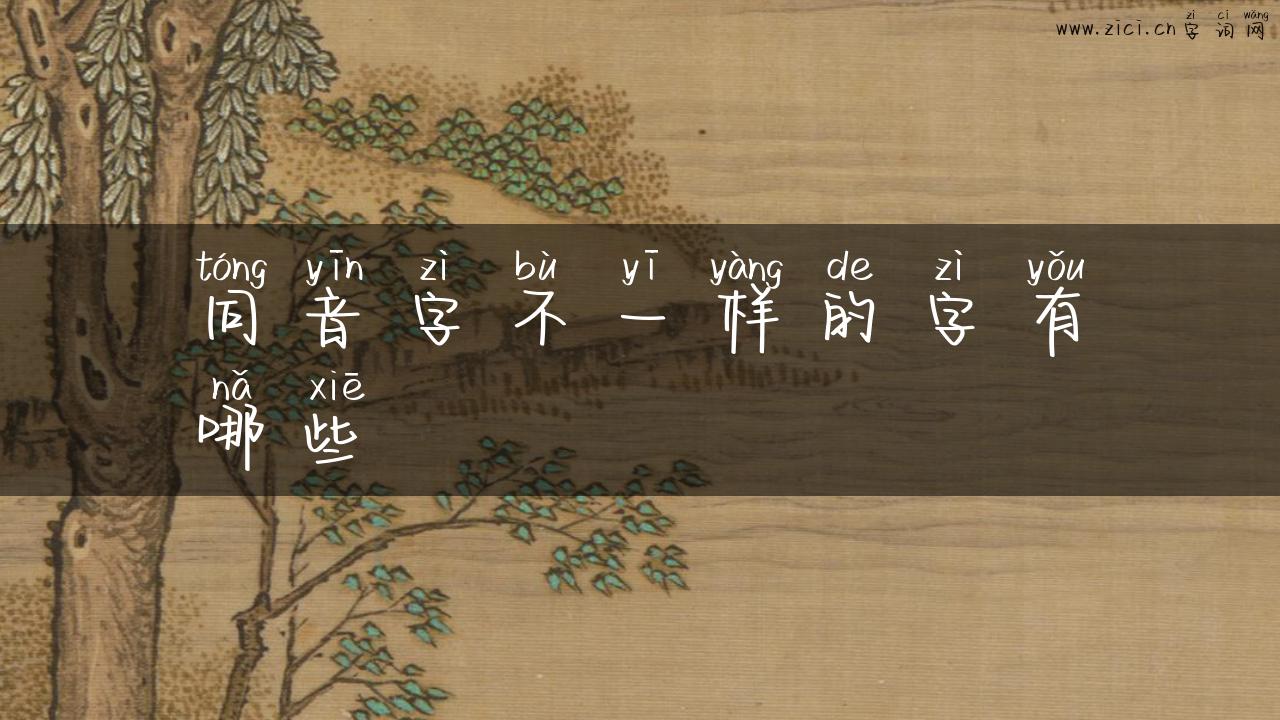 zì cí wǎng
www.zici.cn 字词网
tóng yīn zì bù yī yàng de zì yǒu
同音字不一样的字有
nǎ xiē
哪些